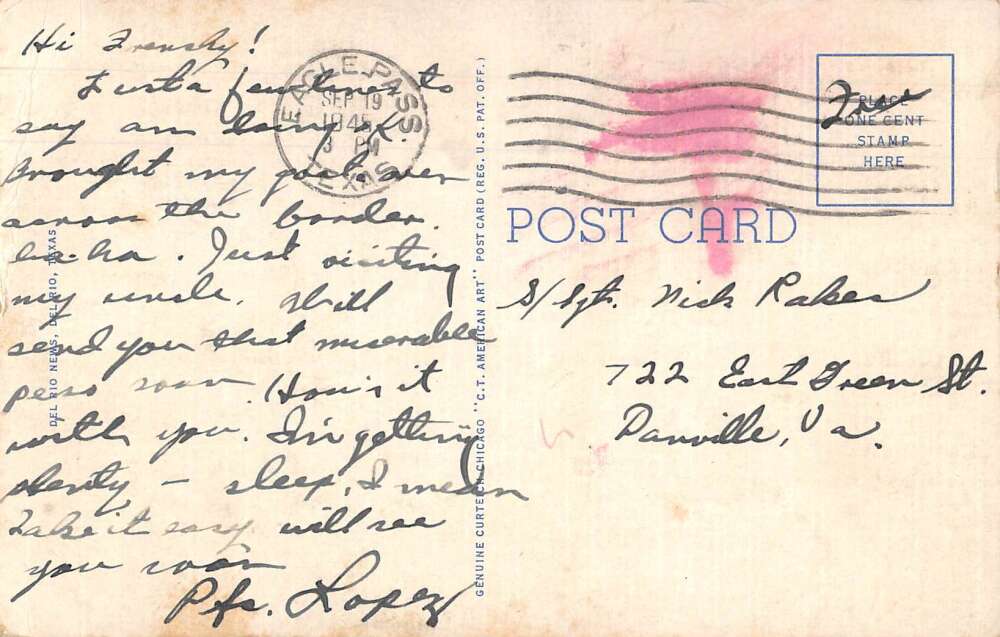 Hi Frenchy!
Just a few lines to
say am doing O.K.
Brought my gal over
across the border.
ha-ha. Just visiting
my uncle. Will
send you that miserable
peso soon. How's it
with you. I'm getting
plenty - sleep, I mean
Take it easy will see
you soon
Pfc. Lopez
DEL RIO NEWS, DEL RIO, TEXAS
EAGLE PASS
SEP 19
1945
3 PM
TEXAS
GENUINE CURTEICH-CHICAGO "C.T. AMERICAN ART" POST CARD (REG. U.S. PAT. OFF.)
Free
PLACE
ONE CENT
STAMP
HERE
POST CARD
S/Sgt. Nick Rakes
722 East Green St.
Danville, Va.